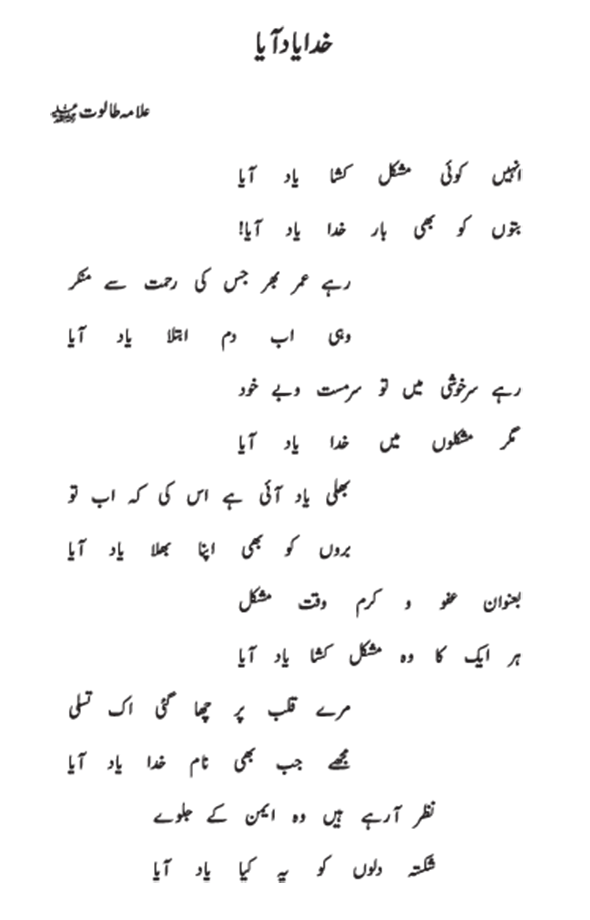 خدا یاد آیا
علامہ طالوت رحمۃ اللہ علیہ
انہیں کوئی مشکل کشا یاد آیا
بتوں کو بھی بار خدا یاد آیا!
رہے عمر بھر جس کی رحمت سے منکر
وہی اب دم ابتلا یاد آیا
رہے سرخوشی میں تو سرمست وبے خود
مگر مشکلوں میں خدا یاد آیا
بھلی یاد آئی ہے اس کی کہ اب تو
بروں کو بھی اپنا بھلا یاد آیا
بعنوان عفو و کرم وقت مشکل
ہر ایک کا وہ مشکل کشا یاد آیا
مرے قلب پر چھا گئی اک تسلی
مجھے جب بھی نام خدا یاد آیا
نظر آرہے ہیں وہ ایمن کے جلوے
شکستہ دلوں کو یہ کیا یاد آیا